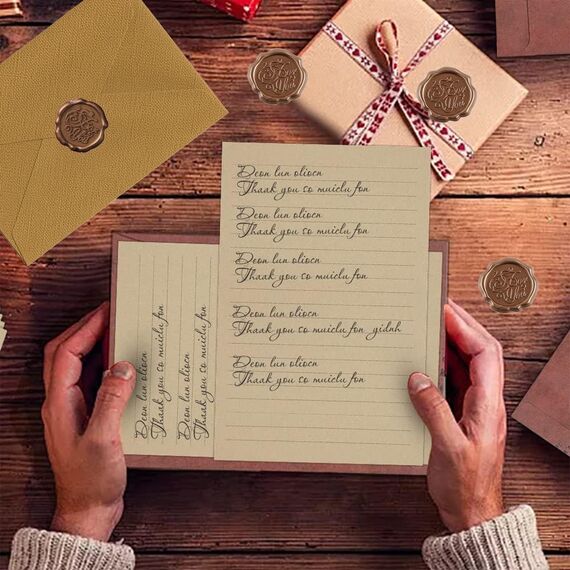 Deon lun oliocn
Thaak you so muiclu fon
Deon lun oliocn
Thaak you so muiclu fon
Deon lun oliocn
Thaak you so muiclu fon
Deon lun oliocn
Thaak you so muiclu fon gidnh
Deon lun oliocn
Thaak you so muiclu fon
Deon lun oliocn
Thaak you so muiclu fon
Deon lun oliocn
Thaak you so muiclu fon